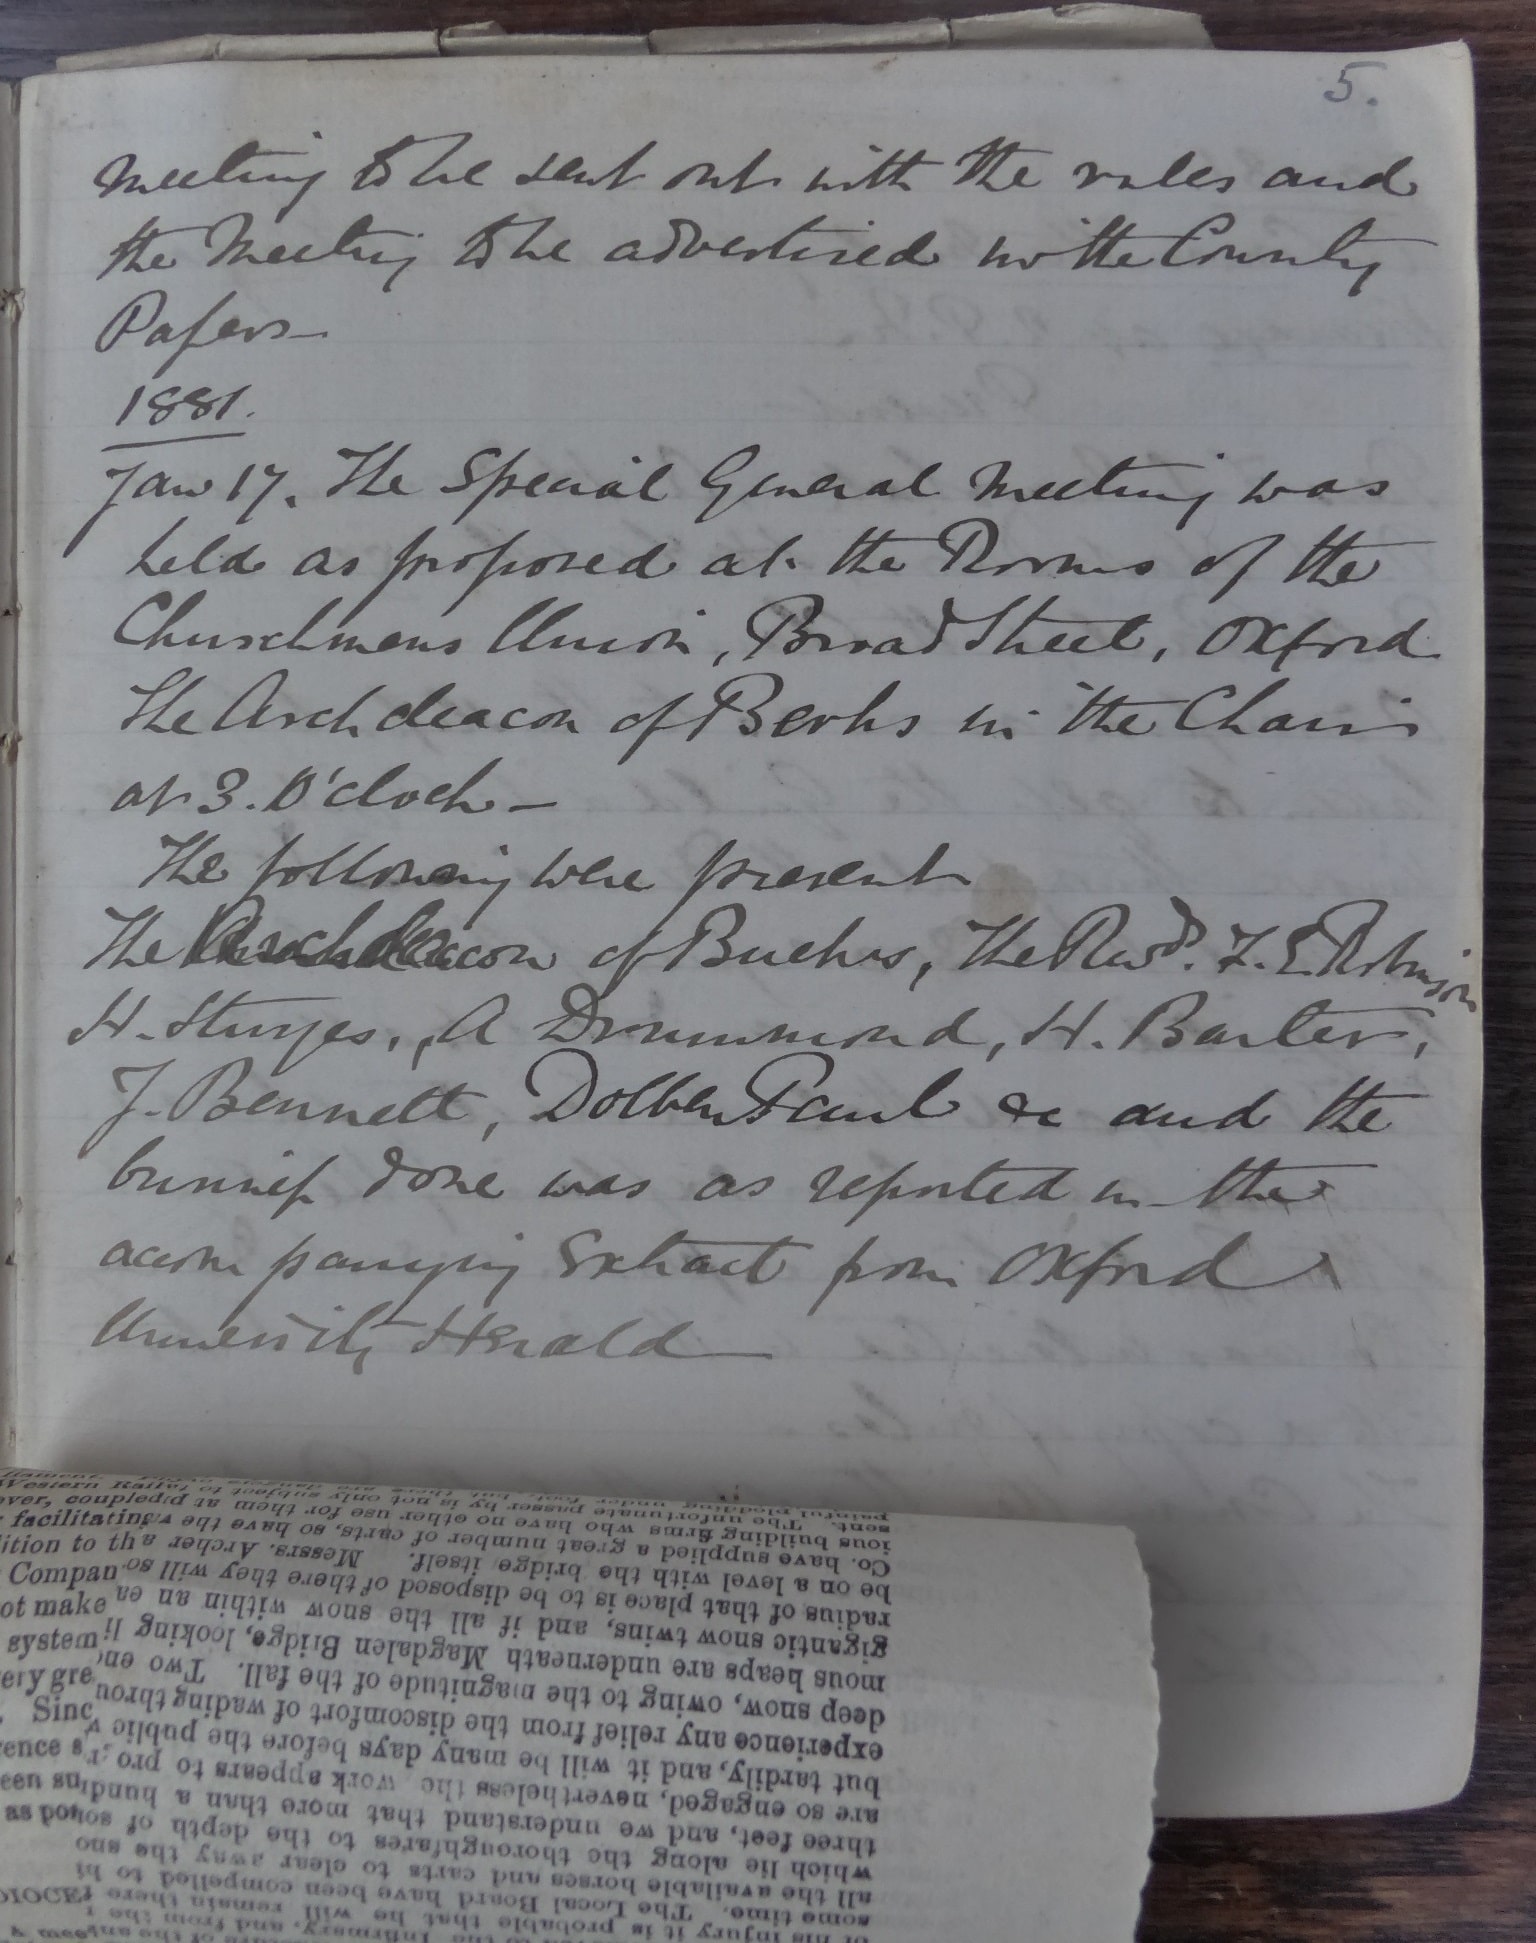 5.
Meeting to be sent out with the rules and
the Meeting to be advertised in the County
Papers—
1881.
Jan 17. The Special General Meeting was
held as proposed at the Rooms of the
Churchmens Union, Broad Street, Oxford
The Archdeacon of Berks in the Chair
at 3. O'cloch—
The following were present
The Archdeacon of Bucks, The Revd. F. E. Robinson
H. Sturges, A Drummond, H. Barter,
J. Bennett, Dolben Paul &c and the
business done was as reported in the
accompanying Extract from Oxford
University Herald—
Western
ever, coupled
facilitating
ition to th
Compan
ot make
system
ery gre
Sinc
rence s
een
as pow
DIOCE
of his injury it is probable that he will remain there
some time. The Local Board have been compelled to
all the available horses and carts to clear away the sno
which lie along the thoroughfares to the depth of so
three feet, and we understand that more than a hund
are so engaged, nevertheless the work appears to pro
but tardily, and it will be many days before the public
experience any relief from the discomfort of wading throu
deep snow, owing to the magnitude of the fall. Two en
mous heaps are underneath Magdalen Bridge, looking li
gigantic snow twins, and if all the snow within an ea
radius of that place is to be disposed of there they will so
be on a level with the bridge itself. Messrs. Archer a
Co. have supplied a great number of carts, so have the
ious building firms who have no other use for them at p
sent. The unfortunate passer by is not only subject to